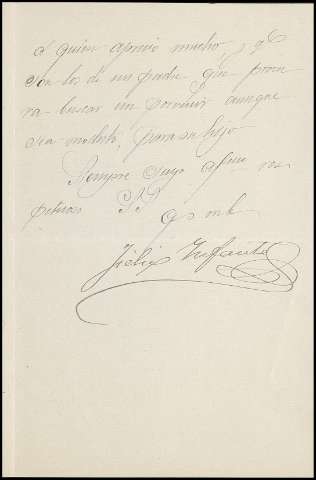 á quien aprecio mucho, y qe
son los de un padre que procu
ra buscar un porvenir aunque
sea modesto, para su hijo
Siempre suyo afmo res
petuoso S S
q s m b
Félix Infante